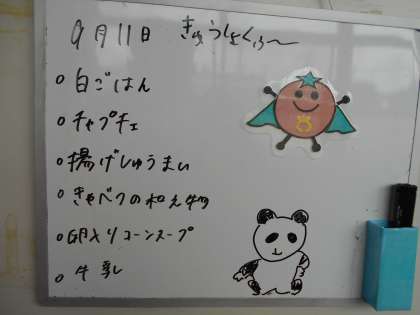 9月11日 きゅうしょくぅ〜
○白ごはん
○チャプチェ
○揚げしゅうまい
○きゃべつの和え物
○卵入りコーンスープ
○牛乳